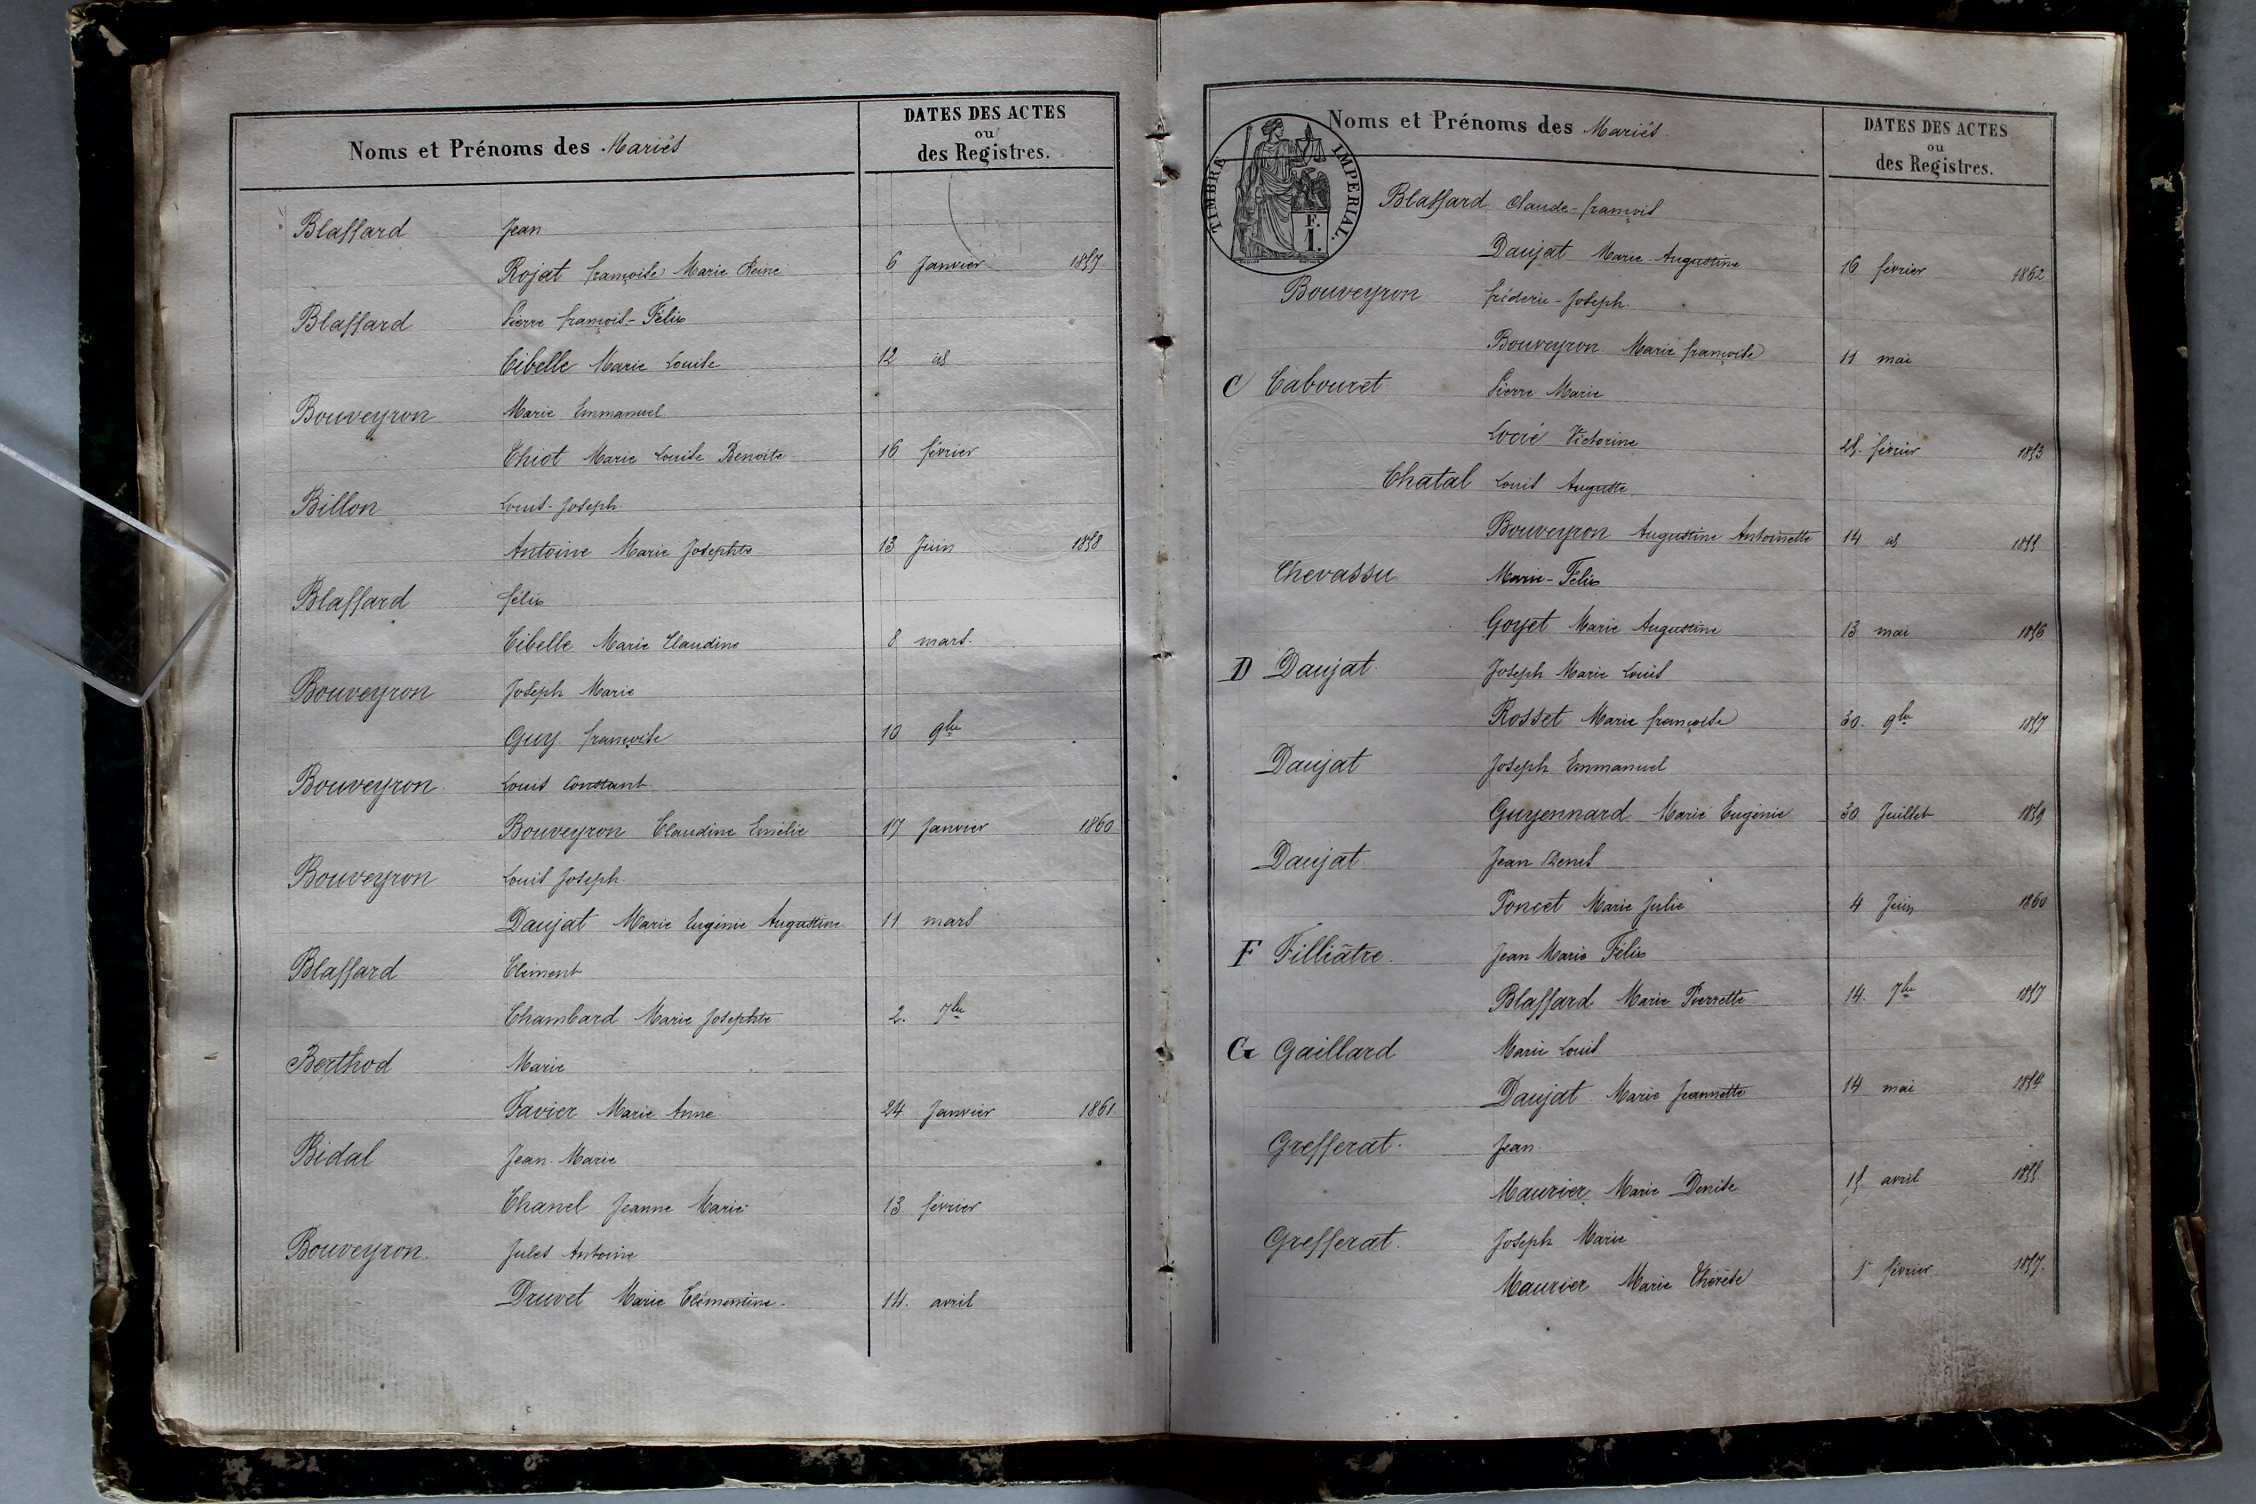 Noms et Prénoms des Mariés
DATES DES ACTES
ou
des Registres.
Blaffard Jean
Rojat françoise Marie Reine 6 Janvier 1857
Blaffard Pierre françois-Félix
Cibelle Marie Louise 12 id
Bouveyron Marie Emmanuel
Thiot Marie Louise Benoite 16 février
Billon Louis-Joseph
Antoine Marie Josephte 13 Juin 1858
Blaffard félix
Cibelle Marie Claudine 8 mars.
Bouveyron Joseph Marie
Guy françoise 10 9bre
Bouveyron Louis Constant
Bouveyron Claudine Emélie 17 Janvier 1860
Bouveyron Louis Joseph
Daujat Marie Eugénie Augustine 11 mars
Blaffard Clément
Chambard Marie Josephte 2. 7bre
Berthod Marie
Favier Marie Anne 24 Janvier 1861
Bidal Jean Marie
Chanel Jeanne Marie 13 février
Bouveyron Jules Antoine
Druvet Marie Clémentine. 14. avril
Noms et Prénoms des Mariés.
DATES DES ACTES
ou
des Registres.
TIMBRE IMPERIAL.
F.
1.
Blaffard Claude-françois
Daujat Marie Augustine 16 février 1862
Bouveyron fréderic-Joseph
Bouveyron Marie françoise 11 mai
C Cabouret Pierre Marie
Victorine février 1853
Chatal Louis Auguste
Bouveyron Augustine Antoinette 14 id 1855
Chevassu Marie-Félix
Goyet Marie Augustine 13 mai 1856
D Daujat Joseph Marie Louis
Rosset Marie françoise 30. 9bre 1857
Daujat Joseph Emmanuel
Guyennard Marie Eugénie 30 Juillet 1859
Daujat Jean Denis
Poncet Marie Julie 4 Juin 1860
F Filliâtre. Jean Marie Félix
Blaffard Marie Pierrette 14. 7bre 1857
G Gaillard Marie Louis
Daujat Marie Jeannette 14 mai 1854
Grefferat. Jean
Maurier Marie Denise 15 avril 1855
Grefferat. Joseph Marie
Maurier Marie Thérèse 5 février 1857.